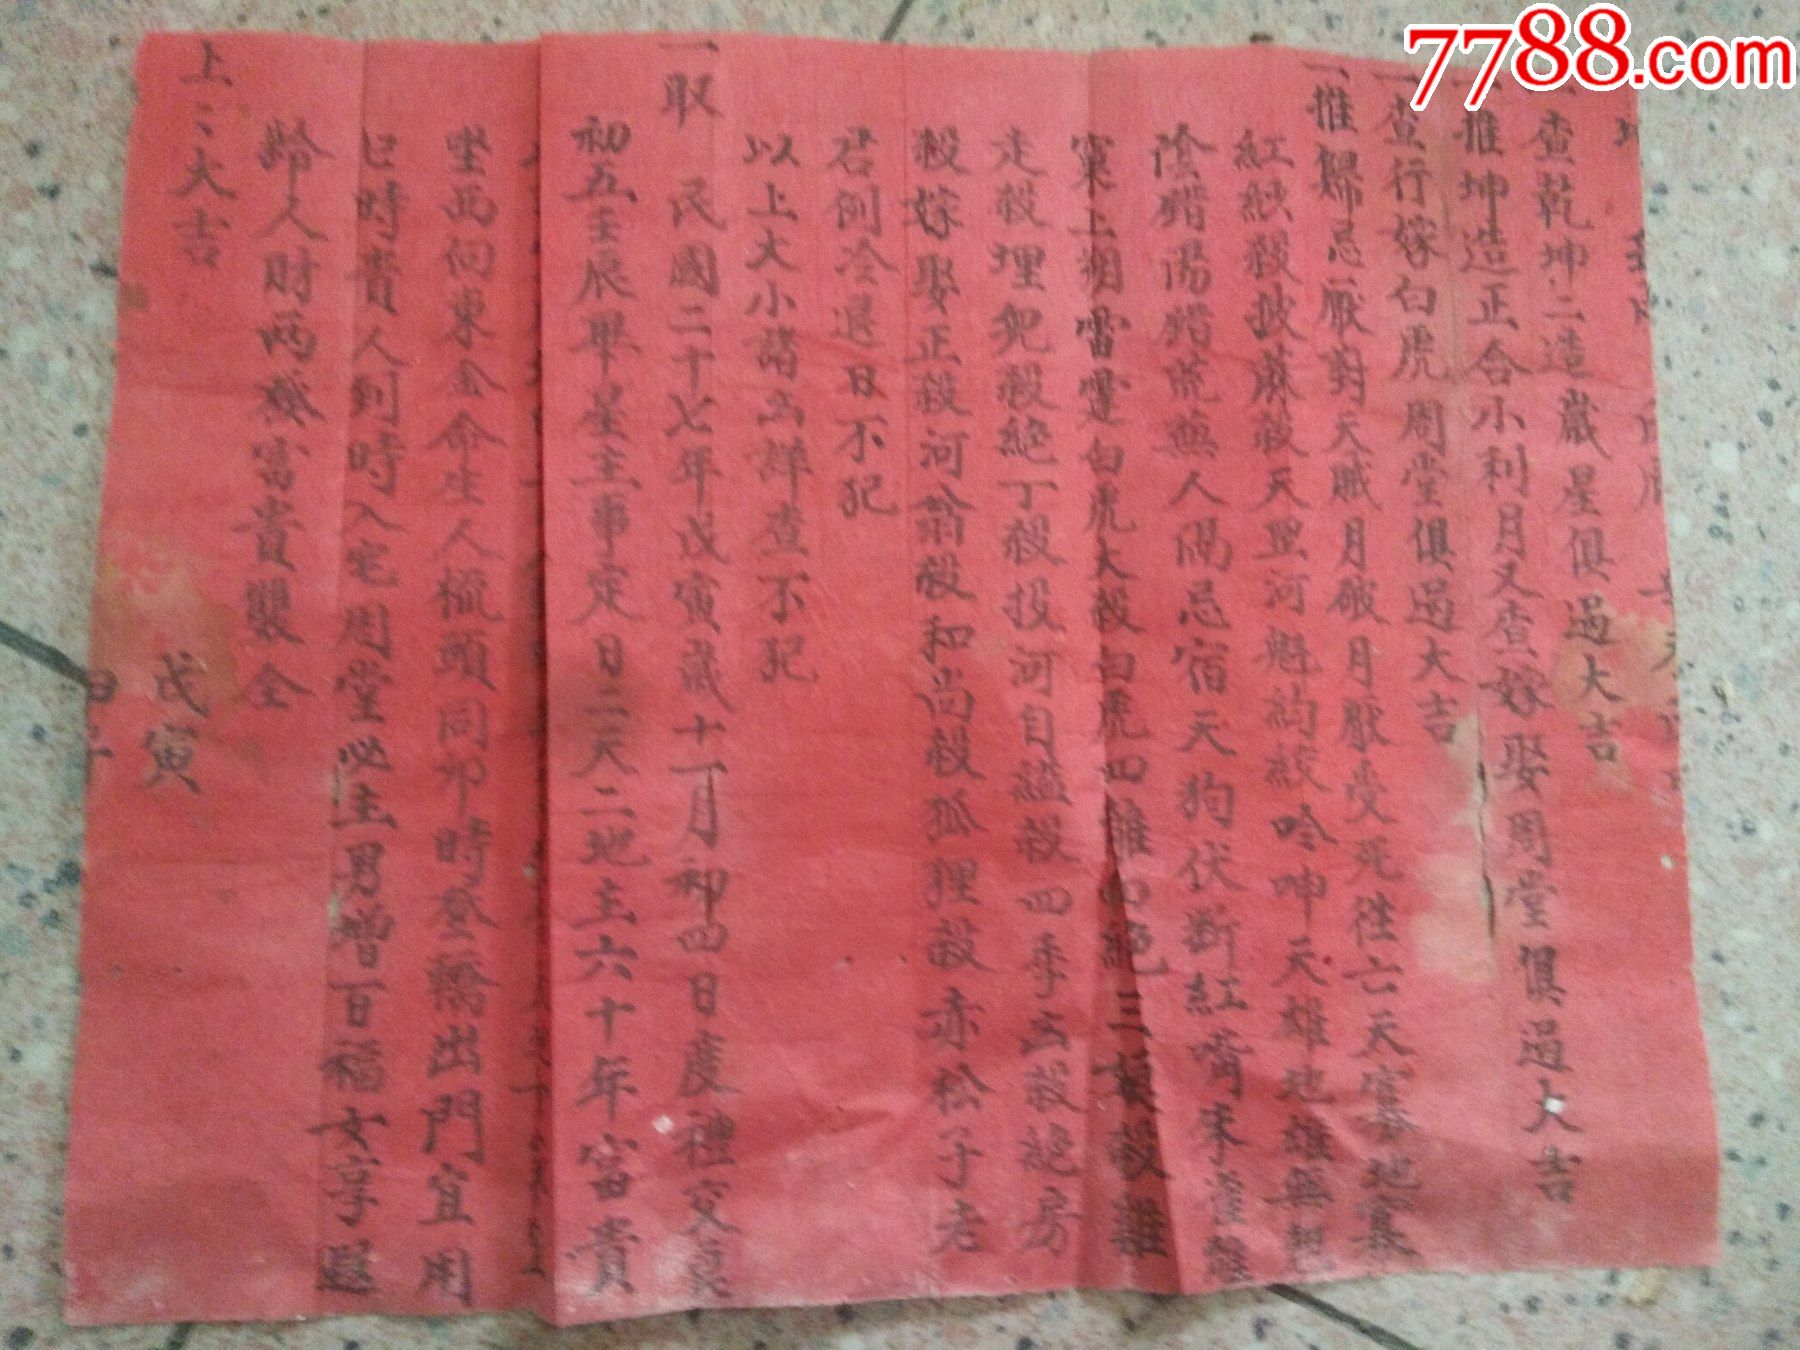 7788.com
查乾坤二造嵗星俱過大吉
一推坤造正合小利月又查嫁娶周堂俱過大吉
一查行嫁白虎周堂俱過大吉
一推歸忌厭對天賊月破月厭受死徃亡天寡地寡
紅紗殺披蔴殺天罡河魁钩絞呤呻天雄地雄無翘
陰錯陽錯荒蕪人隔忌宿天狗伏断紅嘴朱雀
窠上朔雷霆白虎大殺白虎四離四絶三娘殺
走殺埋兒殺絶丁殺投河自縊殺四季凶殺絶房
殺嫁娶正殺河翁殺和尚殺狐狸殺赤松子老
君倒冷退日不犯
以上大小諸凶詳查不犯
一取 民國二十七年戊寅歳十一月初四日度禮交
初五壬辰畢星主事定日二天二地主六十年富貴
坐西向東金命生人梳頭同卯時登轎出門宜用
巳時貴人到時入宅周堂必主男增百福女享遐
齡人財兩發富貴雙全
上〻大吉
戊寅